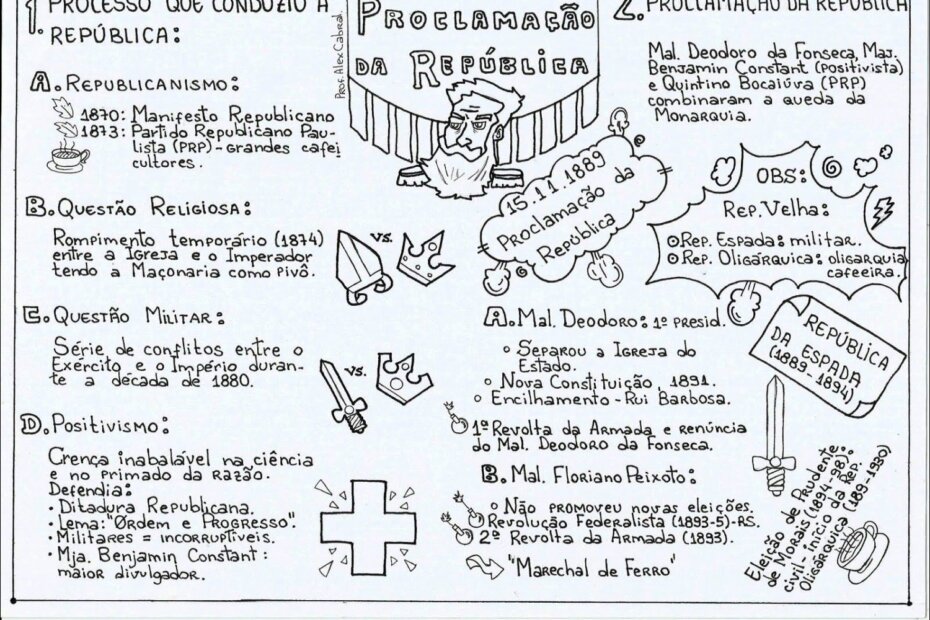 1. PROCESSO QUE CONDUZIU À
REPÚBLICA:
A. REPUBLICANISMO:
1870: Manifesto Republicano
1873: Partido Republicano Pau-
lista (PRP) - grandes cafei
cultores.
B. QUESTÃO RELIGIOSA:
Rompimento temporário (1874)
entre a Igreja e o Imperador
tendo a Maçonaria como pivô.
VS.
C. QUESTÃO MILITAR:
Série de conflitos entre o
Exército e o Império duran-
te a década de 1880.
VS.
D. Positivismo:
Crença inabalável na ciência
e no primado da RAZÃO.
Defendia:
• Ditadura Republicana.
• Lema: "Ordem e Progresso".
• Militares = incorruptíveis.
• Mja. Benjamin Constant:
maior divulgador.
Prof. Alex Cabral
PROCLAMAÇÃO
DA REPÚBLICA
15.11.1889
Proclamação da
República
2. PROCLAMAÇÃO DA REPÚBLICA
Mal. Deodoro da Fonseca, Maj.
Benjamin Constant (positivista)
e Quintino Bocaiúva (PRP)
combinaram a queda da
Monarquia.
OBS:
REP. Velha:
Rep. Espada: militar.
Rep. Oligárquica: oligarquia
cafeeira.
A. Mal. Deodoro: 1º presid.
Separou a Igreja do
Estado.
Nova Constituição, 1891.
Encilhamento - Rui Barbosa.
1ª Revolta da Armada e renúncia
do Mal. Deodoro da Fonseca.
B. Mal. Floriano Peixoto:
Não promoveu novas eleições.
Revolução Federalista (1893-5)-RS.
2ª Revolta da Armada (1893).
"Marechal de Ferro"
REPÚBLICA
DA ESPADA
(1889-1894)
Eleição de Prudente
de Morais (1894-98):
civil - início da Rep.
Oligárquica (189-1930)